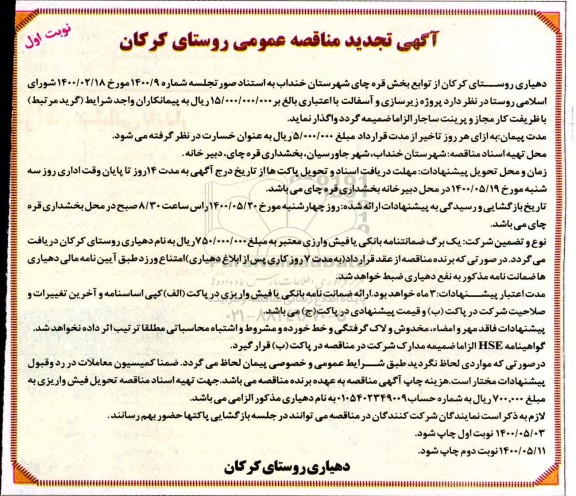 نوبت اول
آگهی تجدید مناقصه عمومی روستای کرکان
دهیاری روستای کرکان از توابع بخش قره چای شهرستان خنداب به استناد صورتجلسه شماره ۱۴۰۰/۹ مورخ ۱۴۰۰/۰۲/۱۸ شورای
اسلامی روستا در نظر دارد پروژه زیرسازی و آسفالت با اعتباری بالغ بر ۱۵/۰۰۰/۰۰۰/۰۰۰ ریال به پیمانکاران واجد شرایط (گرید مرتبط)
با ظریفت کار مجاز و پرینت ساجار الزاما ضمیمه گردد واگذار نماید.
مدت پیمان: به ازای هر روز تاخیر از مدت قرارداد مبلغ ۵/۰۰۰/۰۰۰ ریال به عنوان خسارت در نظر گرفته می شود.
محل تهیه اسناد مناقصه: شهرستان خنداب، شهر جاورسیان، بخشداری قره چای، دبیر خانه.
زمان و محل تحویل پیشنهادات: مهلت دریافت اسناد و تحویل پاکت ها از تاریخ درج آگهی به مدت ۱۴ روز تا پایان وقت اداری روز سه
شنبه مورخ ۱۴۰۰/۰۵/۱۹ در محل دبیر خانه بخشداری قره چای می باشد.
تاریخ بازگشایی و رسیدگی به پیشنهادات ارائه شده: روز چهارشنبه مورخ ۱۴۰۰/۰۵/۲۰ راس ساعت ۸/۳۰ صبح در محل بخشداری قره
چای می باشد.
نوع و تضمین شرکت: یک برگ ضمانتنامه بانکی یا فیش وارزی معتبر به مبلغ ۷۵۰/۰۰۰/۰۰۰ ریال به نام دهیاری روستای کرکان دریافت
می گردد. در صورتی که برنده مناقصه از عقد قرارداد (به مدت ۷ روز کاری پس از ابلاغ دهیاری) امتناع ورزد طبق آیین نامه مالی دهیاری
ها ضمانت نامه مذکور به نفع دهیاری ضبط خواهد شد.
مدت اعتبار پیشنهادات: ۳ ماه خواهد بود. ارائه ضمانت نامه بانکی یا فیش واریزی در پاکت (الف) کپی اساسنامه و آخرین تغییرات و
صلاحیت شرکت در پاکت (ب) و قیمت پیشنهادی در پاکت (ج) می باشد.
پیشنهادات فاقد مهر و امضاء، مخدوش و لاک گرفتگی و خط خورده و مشروط و اشتباه محاسباتی مطلقا ترتیب اثر داده نخواهد شد.
گواهینامه HSE الزاما ضمیمه مدارک شرکت در مناقصه در پاکت (ب) قرار گیرد.
درصورتی که مواردی لحاظ نگردید طبق شرایط عمومی و خصوصی پیمان لحاظ می گردد. ضمنا کمیسیون معاملات در رد و قبول
پیشنهادات مختار است. هزینه چاپ آگهی مناقصه به عهده برنده مناقصه می باشد. جهت تهیه اسناد مناقصه تحویل فیش واریزی به
مبلغ ۷۰۰,۰۰۰ ریال به شماره حساب ۰۱۰۵۴۰۲۳۴۹۰۰۹ به نام دهیاری مذکور الزامی می باشد.
لازم به ذکر است نمایندگان شرکت کنندگان در مناقصه می توانند در جلسه بازگشایی پاکتها حضور بهم رسانند.
۱۴۰۰/۰۵/۰۳ نوبت اول چاپ شود.
۱۴۰۰/۰۵/۱۱ نوبت دوم چاپ شود.
دهیاری روستای کرکان